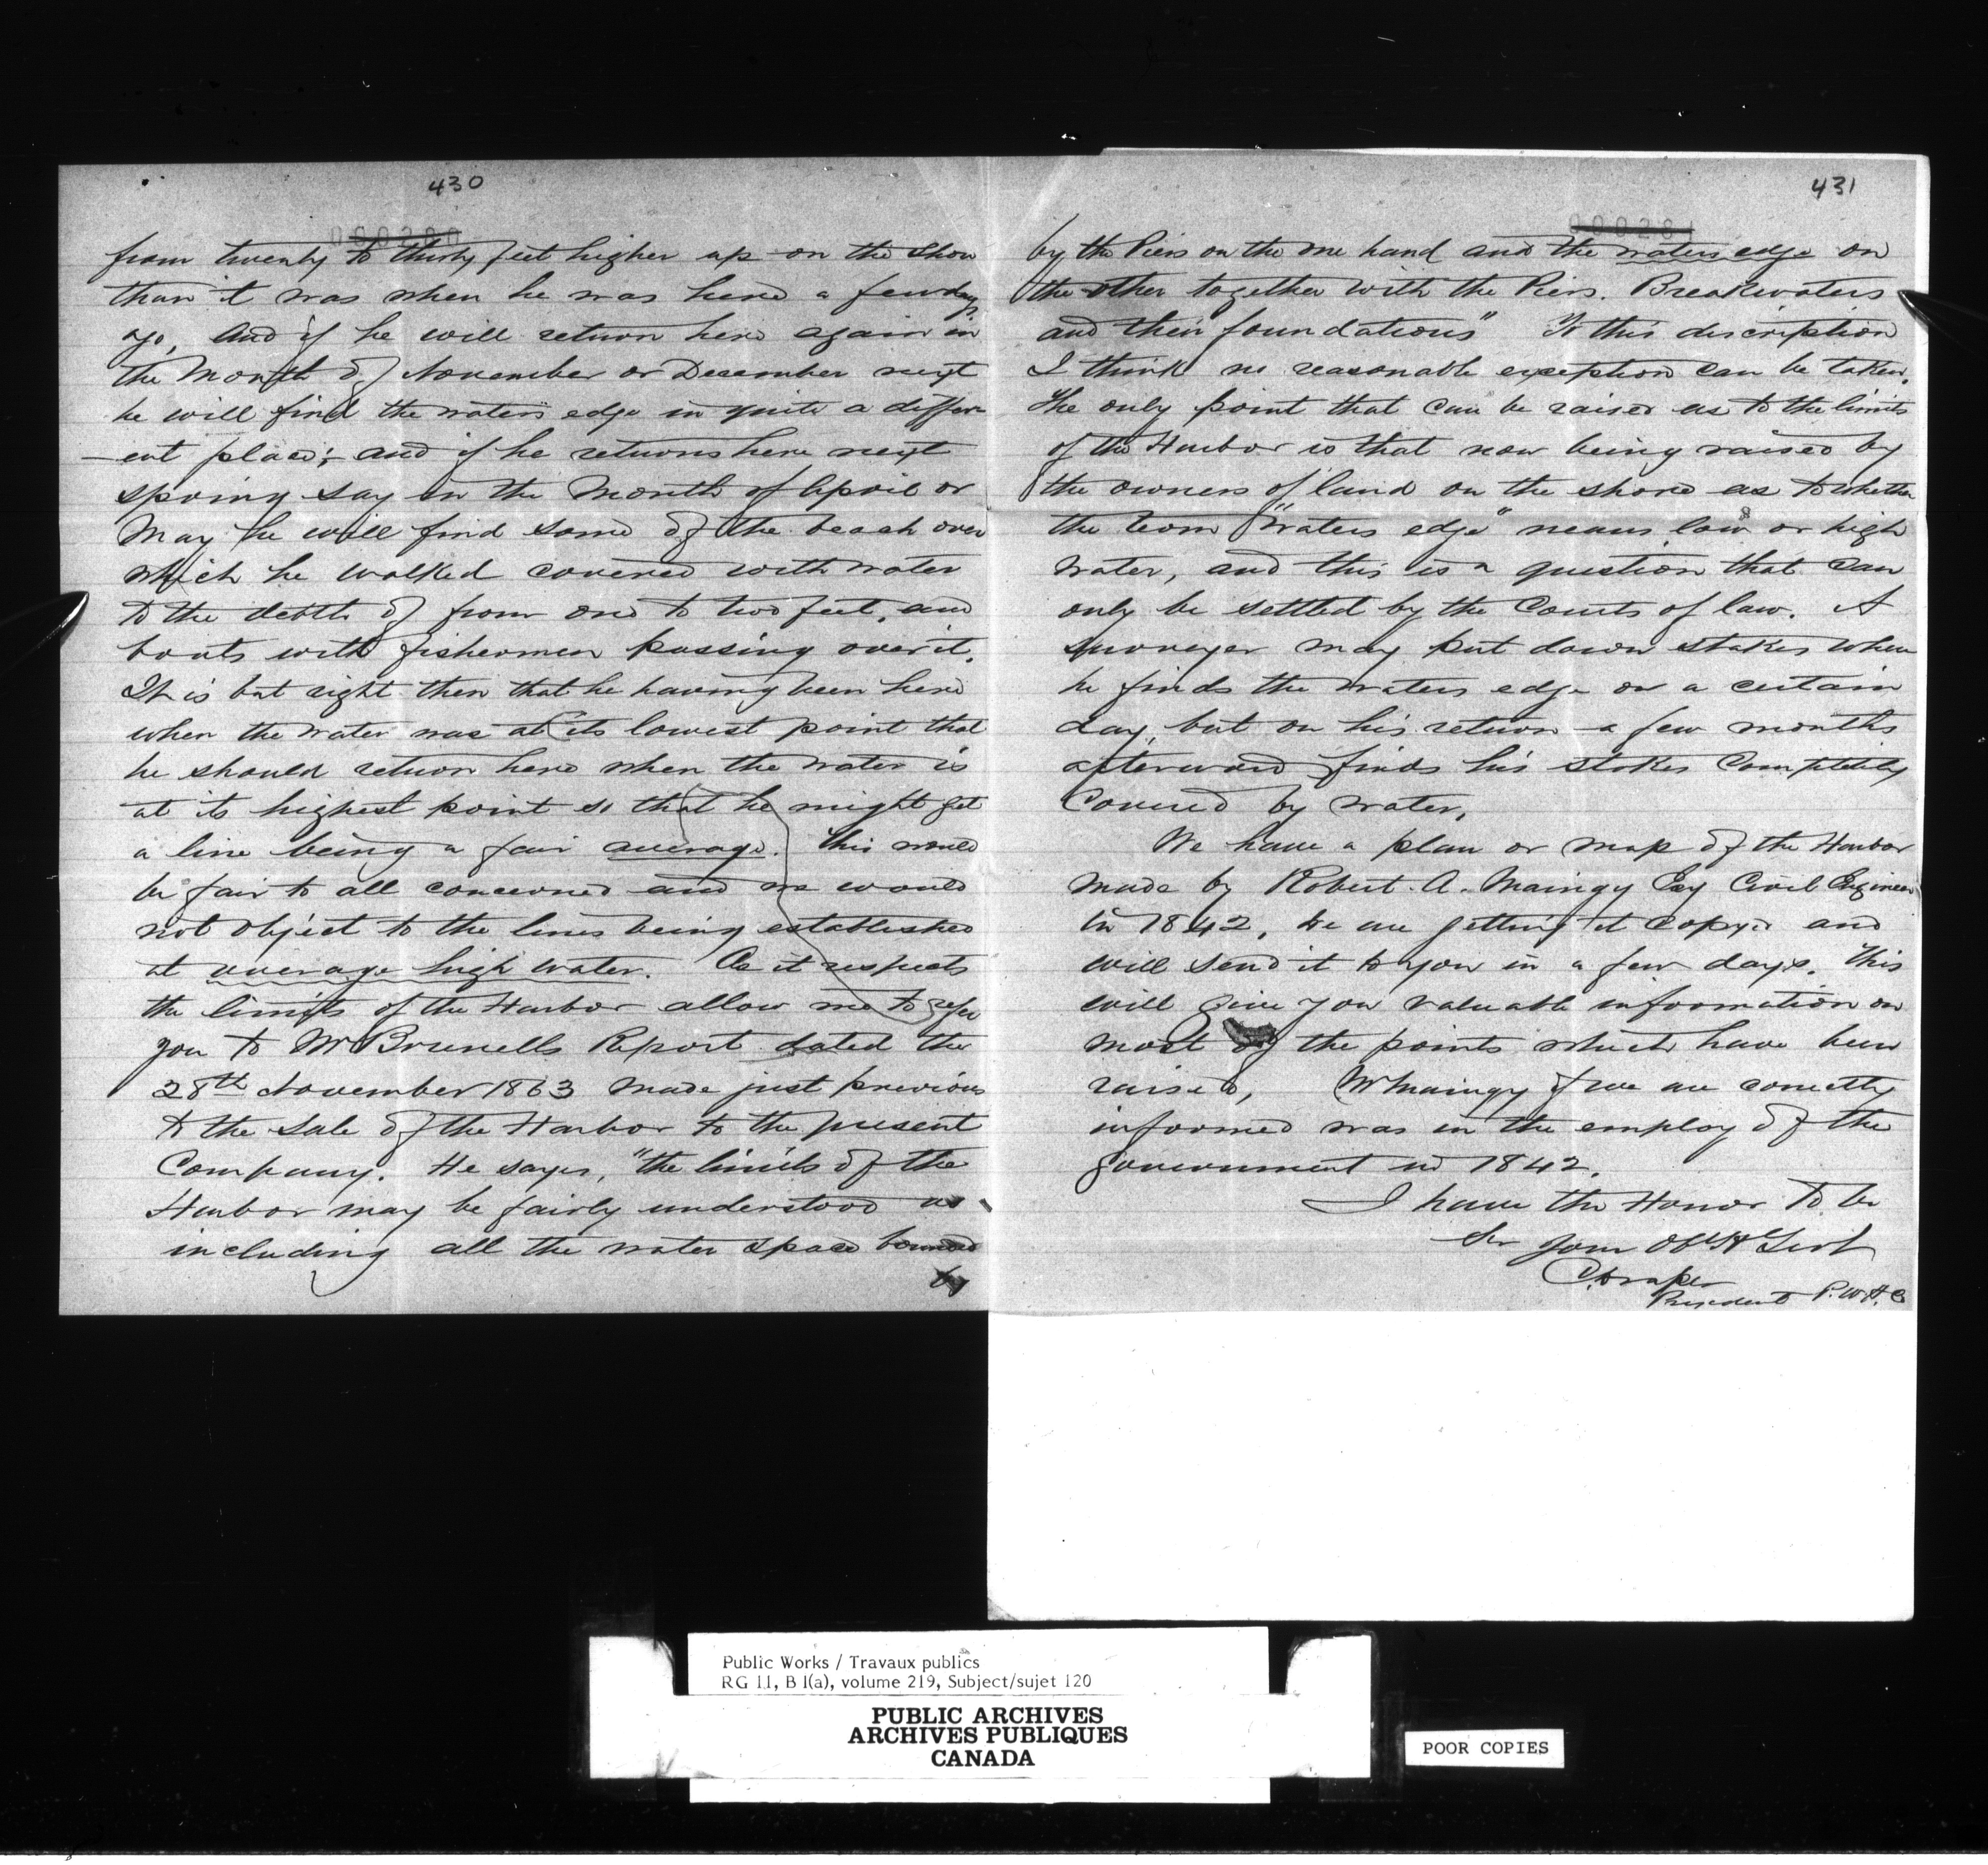 430
000280
from twenty to thirty feet higher up on the shore
than it was when he was here a few days
ago, And if he will return here again in
the Month of November or December next
he will find the waters edge in quite a differ
-ent place; and if he returns here next
spring say in the Month of April or
May he will find some of the beach over
which he walked covered with water
to the debth of from one to two feet, and
boats with fishermen passing over it.
It is but right then that he having been here
when the water was at its lowest point that
he should return here when the water is
at its highest point so that he might get
a line being a fair average. This would
be fair to all concerned and we would
not object to the lines being established
at average high water. As it respects
the limits of the Harbor allow me to refer
you to Mr Brunells Report dated the
28th November 1863 made just previous
to the Sale of the Harbor to the present
Company. He says, "the limits of the
Harbor may be fairly understood as
including all the water space bounded
by
431
000281
by the Piers on the one hand and the waters edge on
the other together with the Piers. Breakwaters
and their foundations" To this discription
I think no reasonable exception can be taken.
The only point that can be raised as to the limits
of the Harbor is that now being raised by
the owners of land on the shore as to whether
the term "waters edge" means low or high
water, and this is a question that can
only be settled by the Courts of law. A
surveyor may put down stakes when
he finds the waters edge on a certain
day, but on his return a few months
afterward finds his stakes completely
Covered by water.
We have a plan or map of the Harbor
made by Robert A. Maingy Esq Civil Engineer
in 1842, we are getting it copyed and
will send it to you in a few days. This
will give you valuable information on
most of the points which have been
raised, Mr Maingy if we are correctly
informed was in the employ of the
government in 1842.
I have the Honor to be
Sir your Obt H Servt
C. Draper
President P.W.H.C
Public Works / Travaux publics
RG 11, B 1(a), volume 219, Subject/sujet 120
PUBLIC ARCHIVES
ARCHIVES PUBLIQUES
CANADA
POOR COPIES